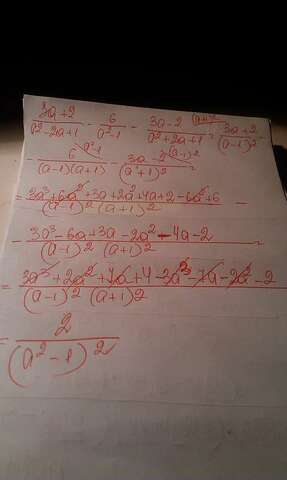 3a+2/a²-2a+1 - 6/a²-1 - 3a-2/a²+2a+1 = 3a+2/(a-1)² (a+1)² -
- 6/(a-1)(a+1) a²-1 - 3a-2/(a+1)² (a-1)² =
= 3a³+6a²+3a+2a²+4a+2-6a²+6/(a-1)² (a+1)² -
- 3a³-6a+3a-2a²-4a-2/(a-1)² (a+1)² =
= 3a³+2a²+7a+4-3a³-7a-2a²-2/(a-1)² (a+1)²
= 2/(a²-1)²